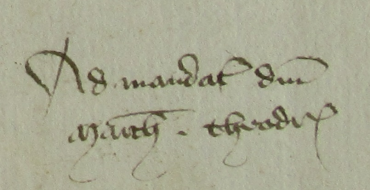 Ad mandat dm
March. theodr